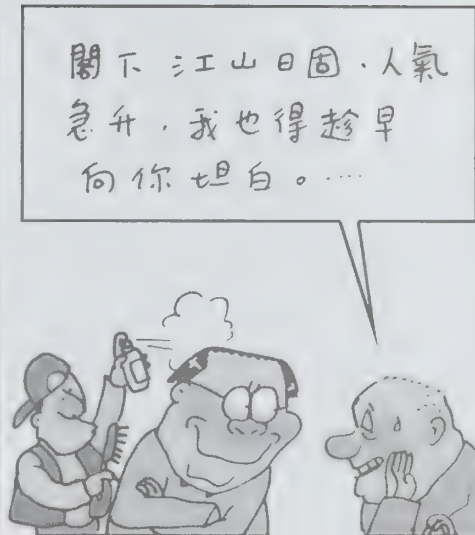 閣下江山日固．人氣
急升．我也得趁早
向你坦白。……